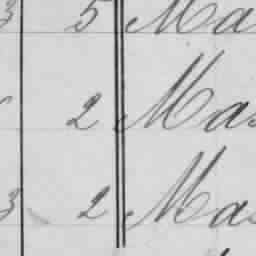 3 5 Ma
2 Mas
3 2 Mas